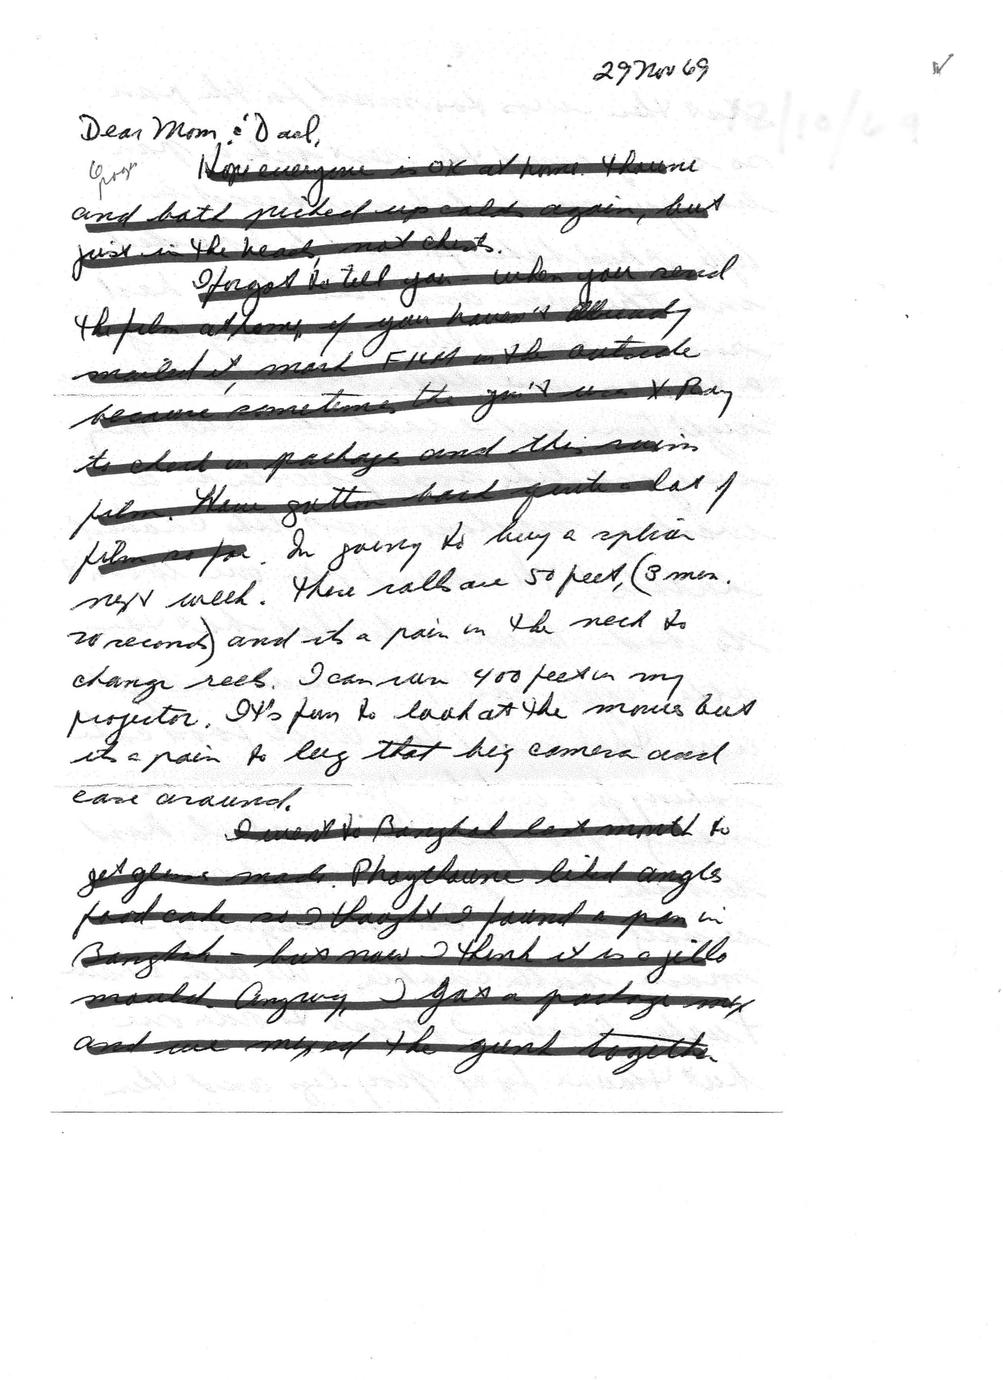 29 Nov 69
Dear Mom & Dad,
Hope everyone is OK at home.
and both picked up colds again, but
just in the head, not chests.
I forgot to tell you – when you send
the film at home, if you haven't already
mailed it, mark FILM on the outside
because sometimes the gov't uses X-Ray
to check on packages and this ruins
film. Have gotten back quite a lot of
film so far. I'm going to buy a splicer
next week. These rolls are 50 feet, (3 min.
20 seconds) and its a pain in the neck to
change reels. I can run 400 feet in my
projector. It's fun to look at the movies but
its a pain to lug that big camera and
case around.
I went to Bangkok last month to
get glasses made. liked angles
food cake so I thought I found a pan in
Bangkok – but now I think it is a jello
mould. Anyway, I got a package mix
and we mixed the gunk together